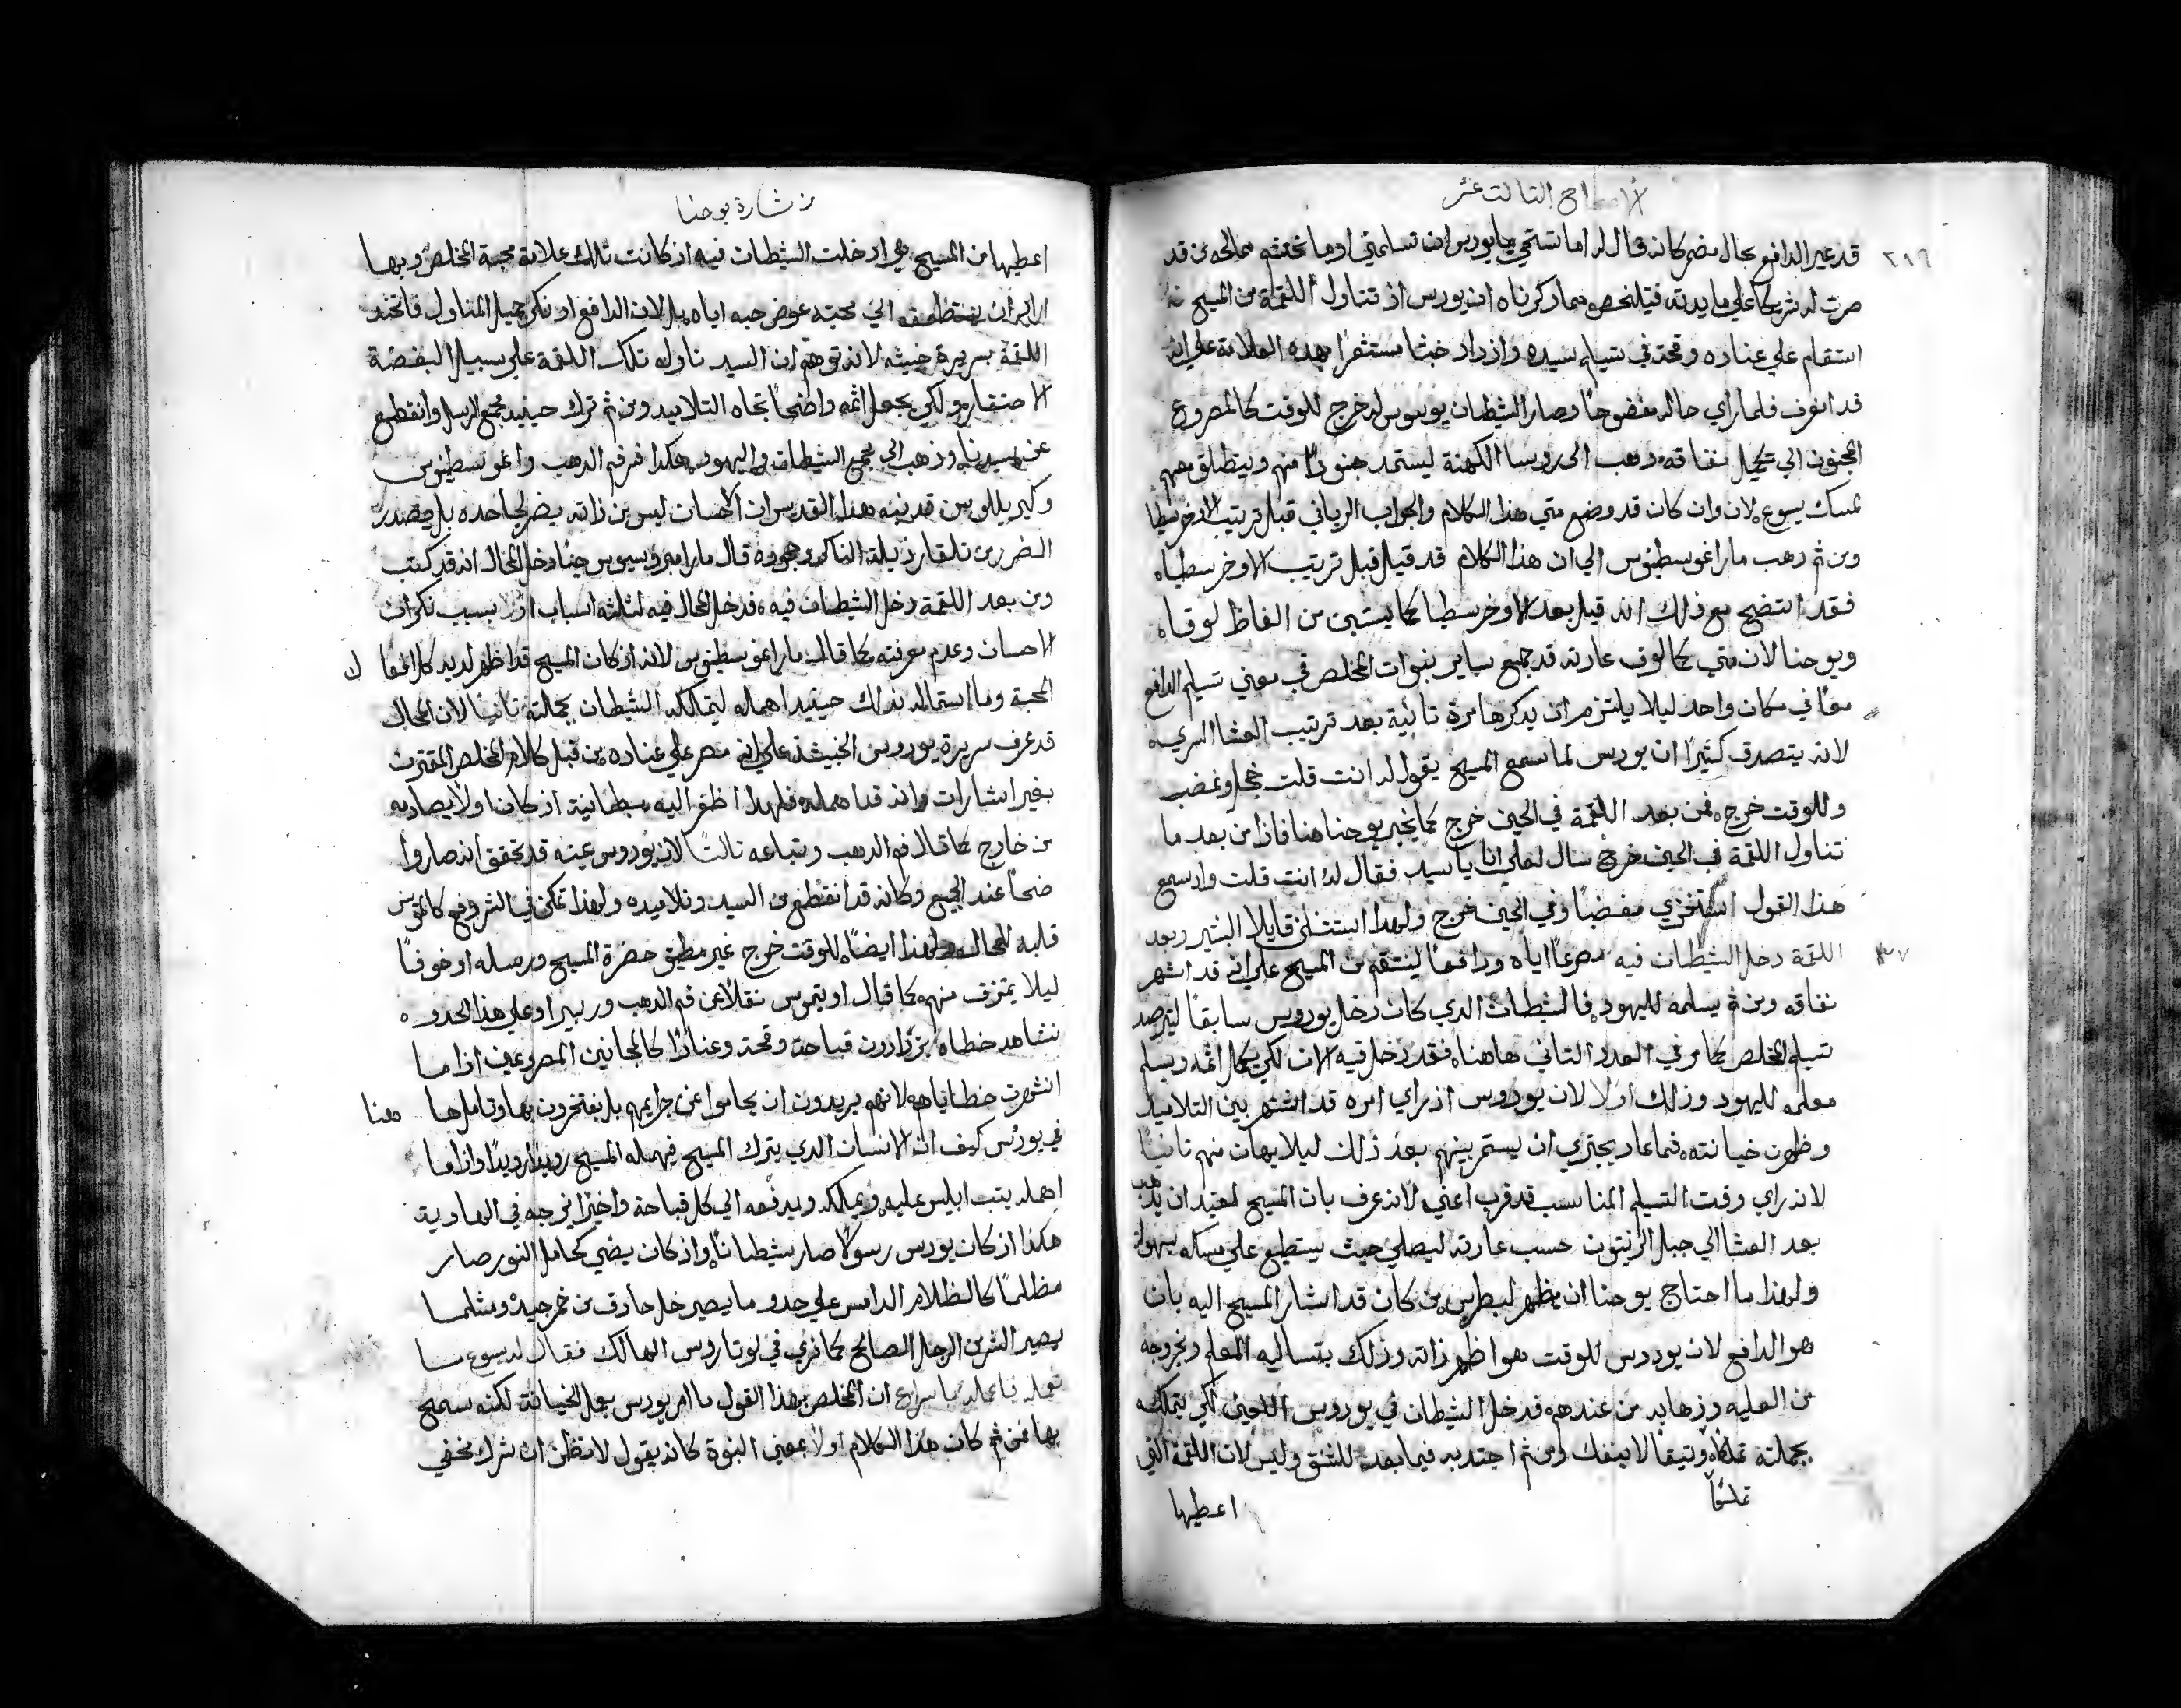 الاصحاح التالت عشر
٢١٩
قد عير الدافع بحال مضر كانه قال له اما تستحي يا يودس ان تسلمني اوما تحتشم ممالحه من قد
صرت له شريكا علي مايدته فيتلخص مما دكرناه ان يودس اذ تناول اللقمة من المسيح
استقام علي عناده وقحته في تسليم سيده وازداد خبثا مستشعرا بهده العلامة علي انه
قد انعرف فلما راي حاله مفضوحا وصار الشيطان يوسوس له خرج للوقت كالمصروع
المجنون الي تكميل نفاقه ودهب الي روسا الكهنة ليستمد جنودا منهم وينطلق معهم
لمسك يسوع لان وان كان قد وضع متي هذا الكلام والجواب الرباني قبل ترتيب الاوخرسطيا
ومن ثم دهب مار اغوسطينوس الي ان هذا الكلام قد قيل قبل ترتيب الاوخرسطيا
فقد اتضح مع ذلك انه قيل بعد الاوخرسطيا كما يستبين من الفاظ لوقا
ويوحنا لان متي كمالوف عادته قد جمع ساير نبوات المخلص في معني تسليم الدافع
معا في مكان واحد ليلا يلتزم ان يدكرها مرة تانية بعد ترتيب العشا السري
لانه يتصدق كثيرا ان يودس لما سمع المسيح يقول له انت قلت خجل وغضب
وللوقت خرج فمن بعد اللقمة في الحين خرج كما يخبر يوحنا هنا فاذا من بعد ما
تناول اللقمة في الحين خرج سال لعلي انا يا سيد فقال له انت قلت واذ سمع
هذا القول استخزي مغضبا وفي الحين خرج ولهدا استثلي قايلا البشير وبعد
٢٧ اللقمة دخل الشيطان فيه مصرعا اياه ودافعا لينتقم من المسيح علي انه قد اشهر
نفاقه ومن ثم يسلمه لليهود فالشيطان الدي كان دخل يودوس سابقا ليترصد
تسليم المخلص كما مر في العدد التاني هاهنا فقد دخل فيه الان لكي يكمل اثمه ويسلم
معلمه لليهود وذلك اولا لان يودوس اذ راي امره قد اشتهر بين التلاميد
وظهرت خيانته فما عاد يجتري ان يستمر بينهم بعد ذلك ليلا يهان منهم تانيا
لانه راي وقت التسليم المناسب قد قرب اعني لانه عرف بان المسيح لعتيد ان يدهب
بعد العشا الي جبل الزيتون حسب عادته ليصلي حيث يستطيع علي مسكه بسهولة
ولهذا ما احتاج يوحنا ان يظهر لبطرس من كان قد اشار المسيح اليه بان
هو الدافع لان يودوس للوقت هو اظهر ذاته وذلك بتساليه المعلم وبخروجه
من العليه وذهابه من عندهم قد دخل الشيطان في يودوس اللعين لكي يتملكه
بجملته تملكا وتيقا لا ينفك ومن ثم اجتدبه فيما بعد للشنق وليس لان اللقمة التي
تملكا
اعطيها
من بشارة يوحنا
اعطيها من المسيح هي ادخلت الشيطان فيه اذ كانت تلك علامة محبة المخلص وبها
اراد ان الي محبته عوض حبه اياه بل لان الدافع اذ نكر جميل المناول فاتخد
اللقمة بسريرة خبيثه لانه توهم ان السيد ناوله تلك اللقمة علي سبيل البغضة
الاحتقار ولكي يجعل اثمه واضحا تجاه التلاميد ومن ثم ترك حينيد مجمع الرسل وانقطع
عن سيدنا وذهب الي مجمع الشيطان واليهود هكدا فم الدهب واغوسطينوس
وكيرللوس قد نبه هذا القديس ان الاحسان ليس من ذاته يضر لجاحده بل يصدر
الضرر من تلقا رذيلة الناكر وجحوده قال مار امبروسيوس حينا دخل المحال انه قد كتب
ومن بعد اللقمة دخل الشيطان فيه فدخل المحال فيه لثلثه اسباب اولا بسبب نكران
الاحسان وعدم معرفته كما قال مار اغوسطينوس لانه اذ كان المسيح قد اظهر لديه كل انواع
المحبة وما استماله بذلك حينيد اهماله ليتملكه الشيطان بجملته تانيا لان المحال
قد عرف سريرة يودوس الخبيثة علي انه مصر علي عناده من قبل كلام المخلص المقترن
بغير اشارات وانه قد اهمله فلهذا ظفر اليه بطمانية اذ كان اولا يصادمه
من خارج كما قال فم الدهب وتباعه تالتا لان يودوس عينه قد تحقق انه صار وا
ضحا عند الجميع وكانه قد انقطع من السيد وتلاميده ولهدا تمكن في الشر وفتح كالترس
قلبه للمحال ولهذا ايضا للوقت خرج غير مطيق حضرة المسيح ورسله او خوفا
ليلا يتمزق منهم كما قال اوتيموس نقلا عن فم الدهب وربيرا وعلي هذا الحدو
نشاهد خطاة يزدادون قباحة وقحة وعنادا كالمجانين المصروعين اذا ما
اشهرت خطاياهم لانهم يريدون ان يحاموا عن جرايمهم بل يفتخرون بها وتامل ها هنا
في يودس كيف ان الانسان الدي يترك المسيح فيهمله المسيح رويدا رويدا واذا ما
اهمله يتب ابليس عليه ويملكه ويدفعه الي كل قباحة واخيرا يزجه في الهاوية
هكذا اذ كان يودس رسولا صار شيطانا واذ كان يضي كحامل النور صار
مظلما كالظلام الدامس علي حدو ما يصير خل حادق من خمر جيدة ومثلما
يصير الشر من الرجل الصالح كما نري في لوتاروس الهالك فقال له يسوع ما
تعمله فاعمله باسراع ان المخلص بهذا القول ما امر يودس بعمل الخيانة لكنه سمح
بها فمن ثم كان هذا الكلام اولا بمعني النبوة كانه يقول لا تظن ان شرك مخفي